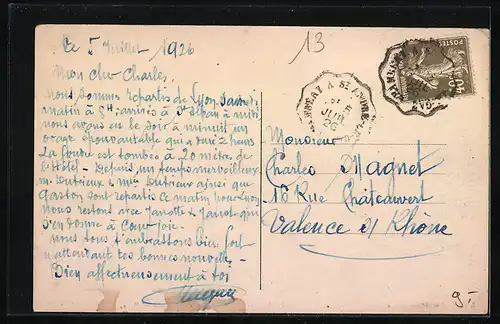 Le 5 Juillet 1926
Mon cher Charles,
nous sommes repartis de Lyon Samedi
matin à 8H; arrivés à St Alban à midi
nous avons eu le soir à minuit un
orage épouvantable qui a duré 2 heures
La foudre est tombée à 20 mètres de
l'Hôtel - Depuis, un temps merveilleux
M. Dutrieux & Mme Dutrieux ainsi que
Gaston sont repartis ce matin pour Lyon
nous restons avec Janotte & Janot qui
s'en donne à Cœur joie -
nous tous t'embrassons bien fort
en attendant tes bonnes nouvelles -
Bien affectueusement à toi
13
Monsieur
Charles Magnet
16 Rue Châteauvert
Valence s/ Rhône
POSTES
9.-